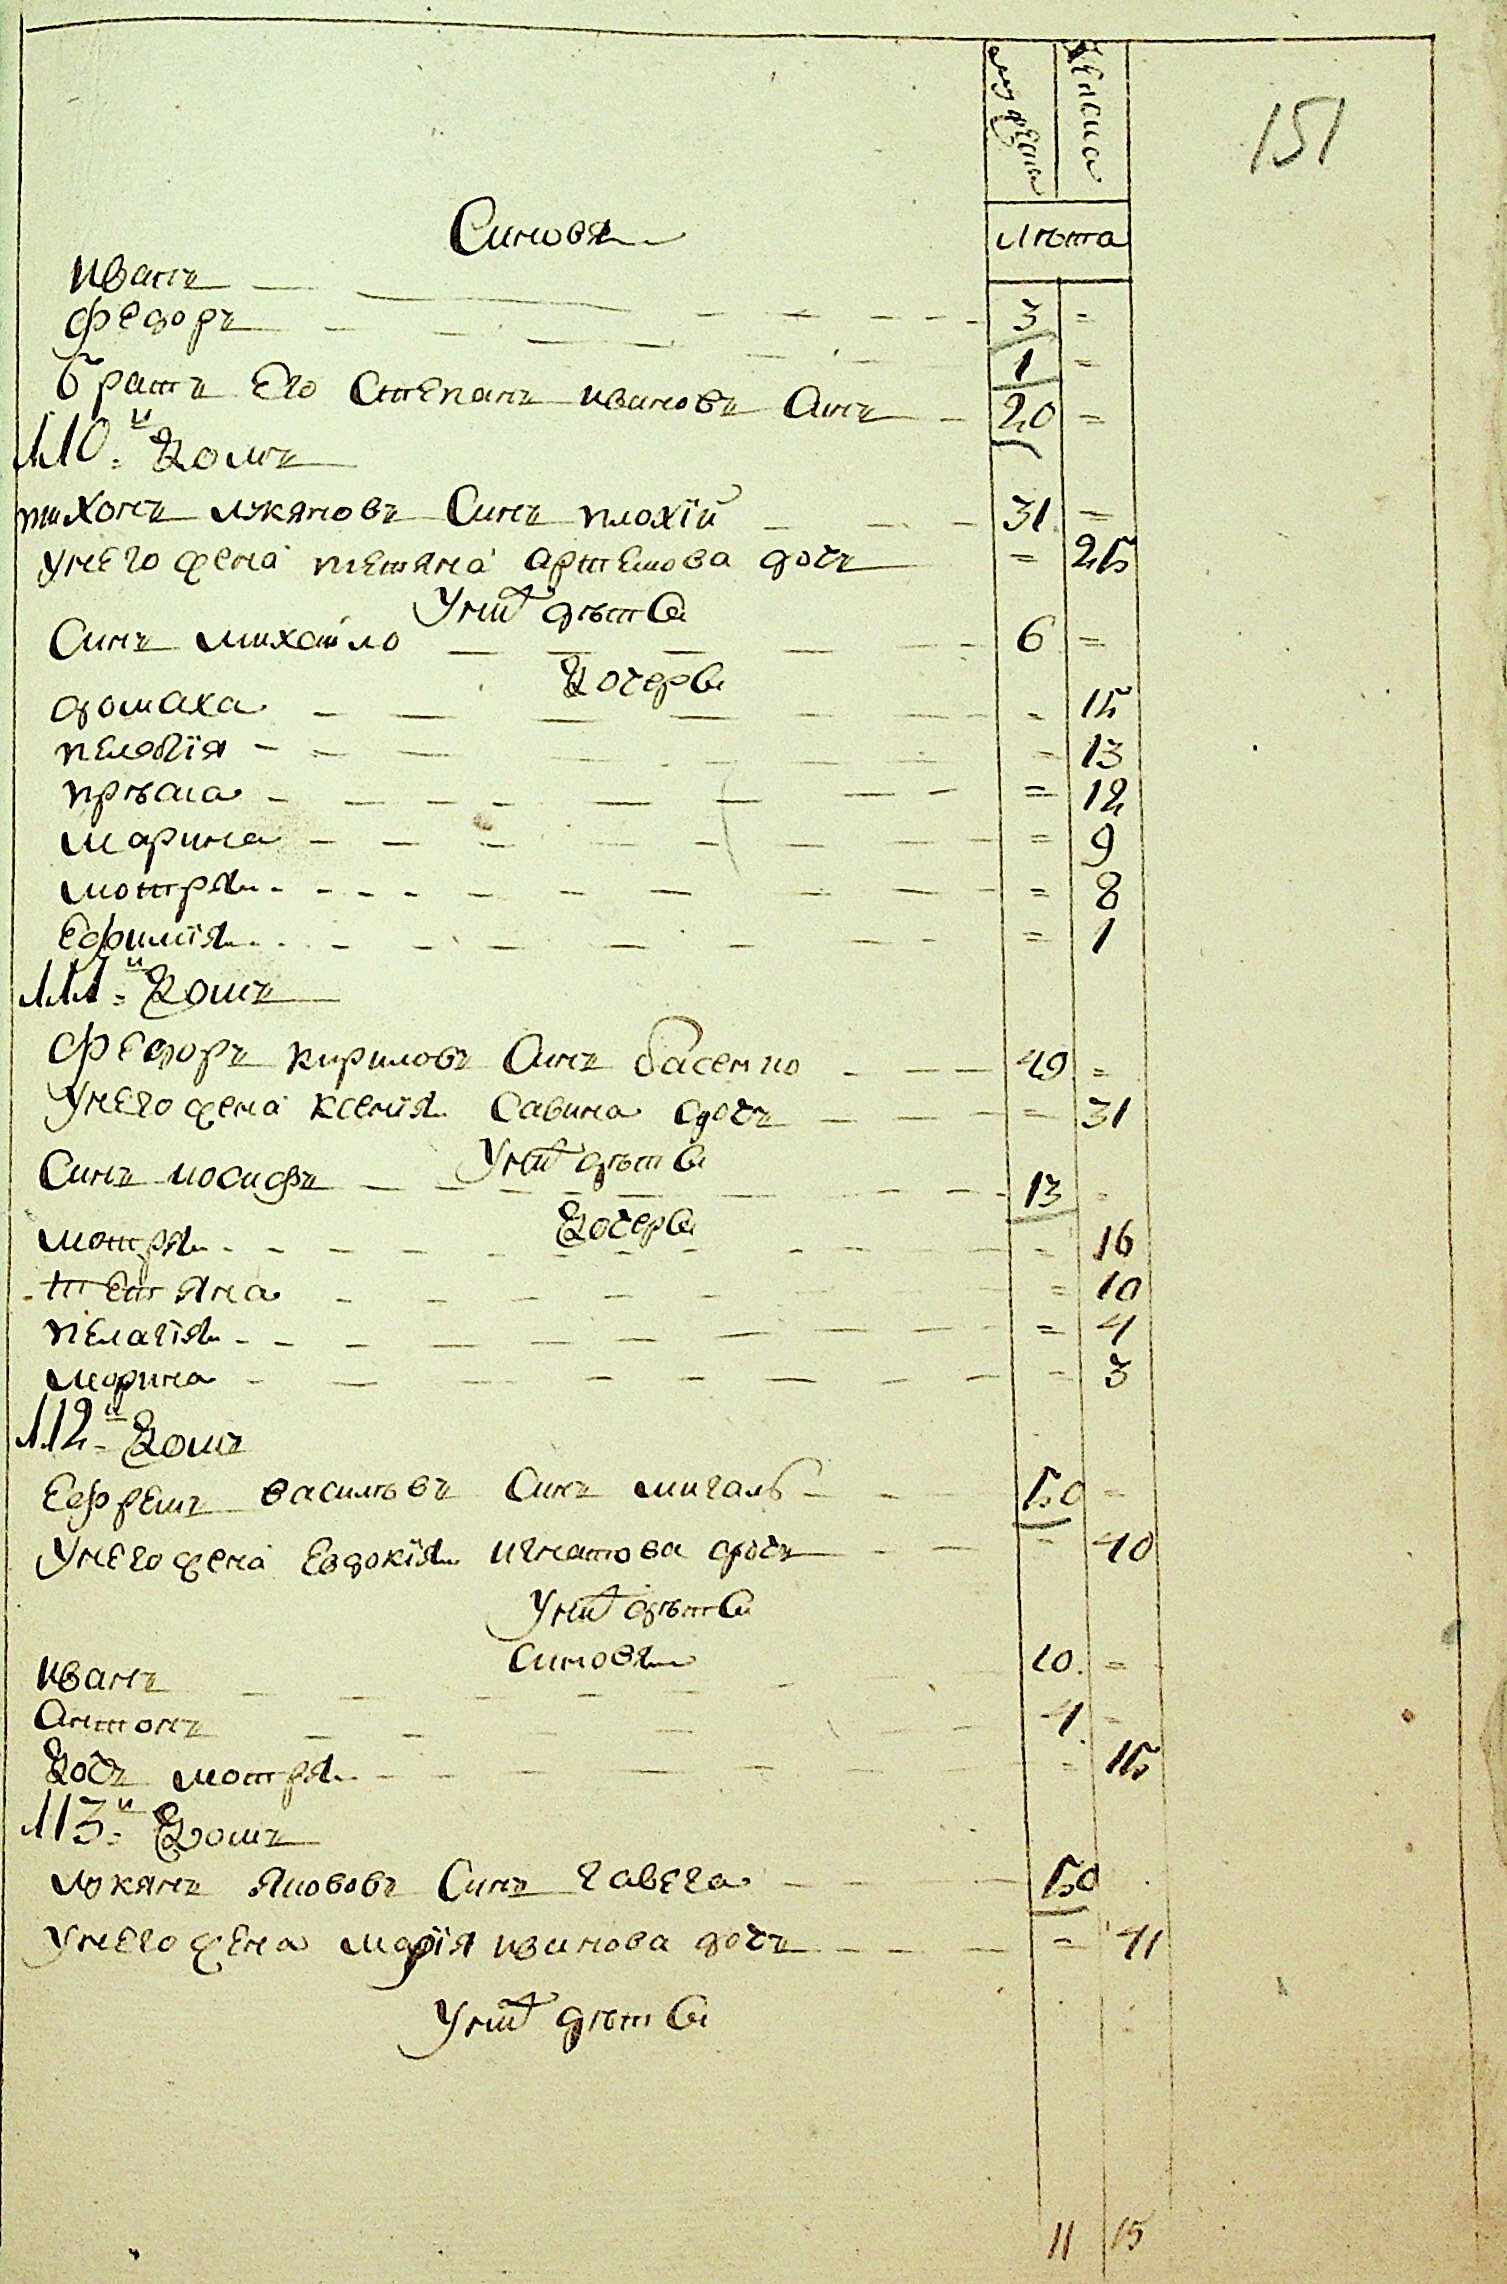 151
мужеска женска
лѣта
Синовя
иванъ 3 =
федоръ 1 =
братъ Его Степанъ ивановъ Синъ 20 =
110-й Домъ
тихонъ лукяновъ Синъ плохїй 31 =
унего жена тетяна артемова дочъ = 25
Унихъ дѣти
Синъ михайло 6 =
Дочери
домаха = 15
пелагїя = 13
прѣска = 12
марина = 9
мотря = 8
Ефимїя = 1
111-й Домъ
Федоръ кириловъ Синъ басенко 49 =
Унего жена ксенїя Савина дочъ = 31
Унихъ дѣти
Синъ иосифъ 13 =
Дочери
мотря = 16
тетяна = 10
пелагїя = 4
марина = 3
112-й Домъ
Ефремъ василѣвъ Синъ мигаль 50 =
Унего жена Евдокїя игнатова дочъ = 40
Унихъ дѣти
Синовя
иванъ 10 =
Антонъ 4 =
Дочъ мотря = 15
113-й Домъ
лукянъ Якововъ Синъ гавега 50
Унего жена марїя иванова дочъ = 41
Унихъ дѣти
11 15